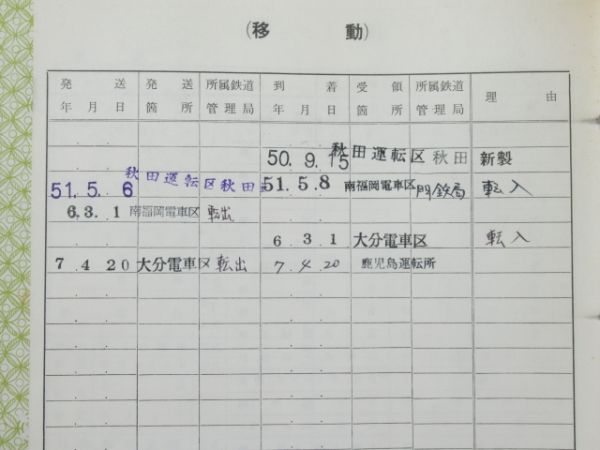 (移 動)
発送年月日 発送箇所 所属鉄道管理局 到着年月日 受領箇所 所属鉄道管理局 理由
50.9.15 秋田運転区 秋田 新製
51.5.6 秋田運転区 秋田 51.5.8 南福岡電車区 門鉄局 転入
6.3.1 南福岡電車区 転出
6 3 1 大分電車区 転入
7 4 20 大分電車区 転出 7 4 20 鹿児島運転所